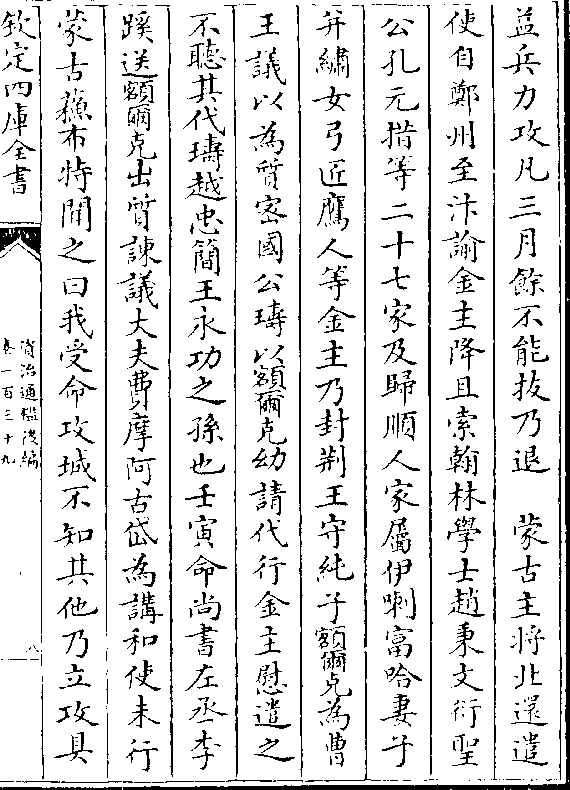 益兵力攻凡三月餘不能拔乃退　蒙古主將北還遣
使自鄭州至汴諭金主降且索翰林學士趙秉文衍聖
公孔元措等二十七家及歸順人家屬伊喇富哈妻子
并繡女弓匠鷹人等金主乃封荆王守純子額爾克為曹
王議以為質密國公璹以額爾克幼請代行金主慰遣之
不聽其代璹越忠簡王永功之孫也壬寅命尚書左丞李
蹊送額爾克出質諫議大夫費摩阿古岱為講和使未行
蒙古蘇布特聞之曰我受命攻城不知其他乃立攻具
欽定四庫全書
資治通鑑後編
卷一百三十九
八